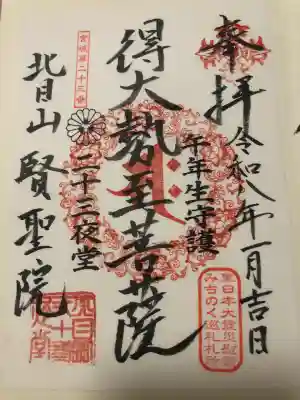 奉拝
令和八年一月吉日
午年生守護
得大勢至菩薩
二十三夜堂
北目山 賢聖院
東日本大震災慰霊
みちのく巡礼札所